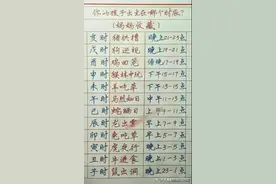 你的孩子出生在哪个时辰?
(妈妈收藏)
亥时 猪拱槽 晚上21-23点
戌时 狗巡视 晚上19-21点
酉时 鸡回笼 傍晚17-19点
申时 猴 下午15-17点
未时 羊吃草 下午13-15点
午时 马 中午11-13点
巳时 蛇 上午9-11点
辰时 龙 早上7-9点
卯时 兔吃草 早上5-7点
寅时 虎 3-5点
丑时 牛 晚上1-3点
子时 鼠出洞 晚上23-1点